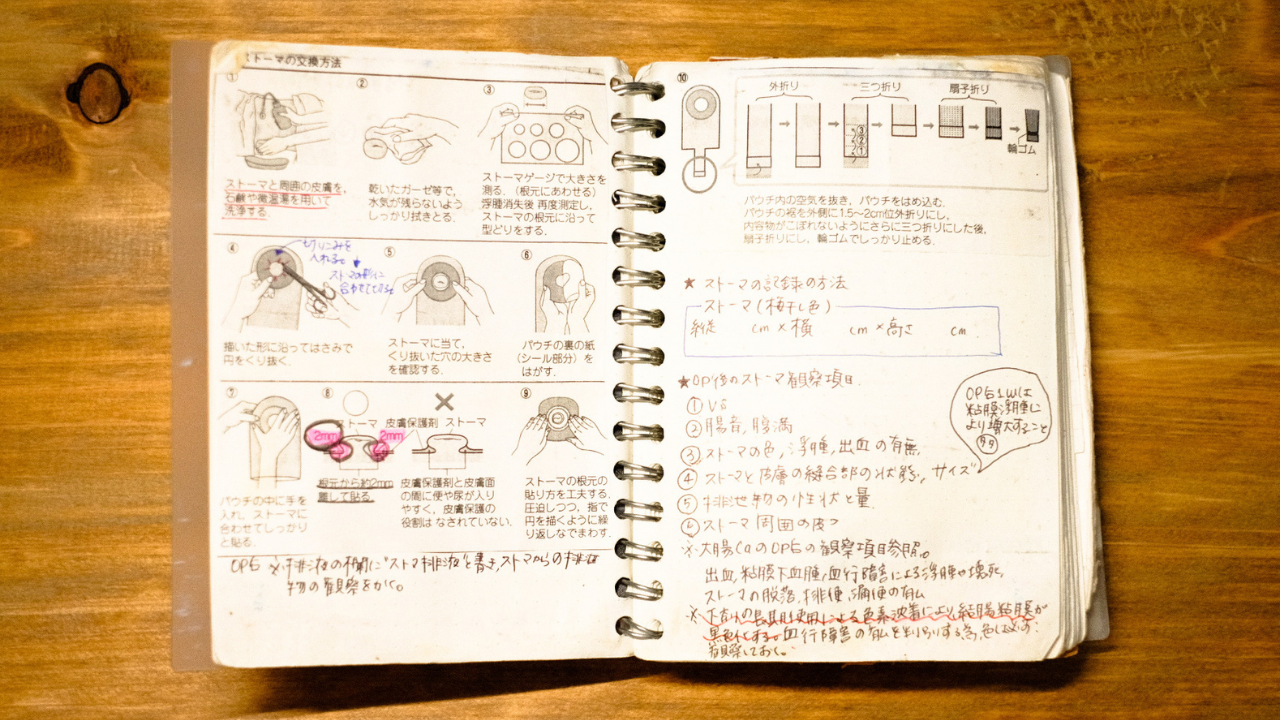 ストーマの交換方法
①
ストーマと周囲の皮膚を、
石鹸や微温湯を用いて
洗浄する。
②
乾いたガーゼ等で、
水気が残らないよう
しっかり拭きとる。
③
ストーマゲージで大きさを
測る。（根元にあわせる）
浮腫消失後 再度測定し、
ストーマの根元に沿って
型どりをする。
④
切りこみを
入れる。
ストマの形に
描いた形に沿ってはさみで
円をくり抜く。
⑤
ストーマに当て、
くり抜いた穴の大きさ
を確認する。
⑥
パウチの裏の紙
（シール部分）を
はがす。
⑦
パウチの中に手を
入れ、ストーマに
合わせてしっかり
と貼る。
⑧
○ ×
ストーマ 皮膚保護剤 ストーマ
2mm 2mm
根元から約2mm
離して貼る。
皮膚保護剤と皮膚面
の間に便や尿が入り
やすく、皮膚保護の
役割は なされていない。
⑨
ストーマの根元の
貼り方を工夫する。
圧迫しつつ、指で
円を描くように繰
り返しなでまわす。
OP後 ※排液の欄に"ストマ排液"と書き、ストマからの排泄
物の観察をかく。
⑩
外折り 三つ折り 扇子折り
③
②
①
輪ゴム
パウチ内の空気を抜き、パウチをはめ込む。
パウチの裾を外側に1.5～2cm位外折りにし、
内容物がこぼれないようにさらに三つ折りにした後、
扇子折りにし、輪ゴムでしっかり止める。
★ ストーマの記録の方法
ストーマ(梅干し色)
縦 cm×横 cm×高さ cm
★OP後のストーマ観察項目.
①VS
②腸音,腹満
③ストーマの色,浮腫,出血の有無.
④ストーマと皮膚の縫合部の状態,サイズ
⑤排泄物の性状と量
⑥ストーマ周囲の皮フ
OP後1Wは
粘膜浮腫に
より増大すること
あり
※大腸CaのOP後の観察項目参照。
出血,粘膜下血腫,血行障害による浮腫や壊死,
ストーマの脱落,排便,漏便の有ム
※下剤の長期使用による色素沈着により結腸粘膜が
黒色化する。血行障害の有ムを判別する為,色は必ず
観察しておく。